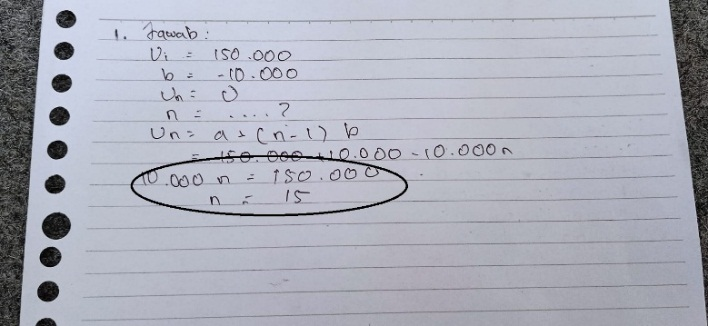 1. Jawab :
U1 = 150.000
b = -10.000
Un = 0
n = .... ?
Un = a + (n-1) b
= 150.000 + 10.000 - 10.000n
10.000 n = 150.000
n = 15